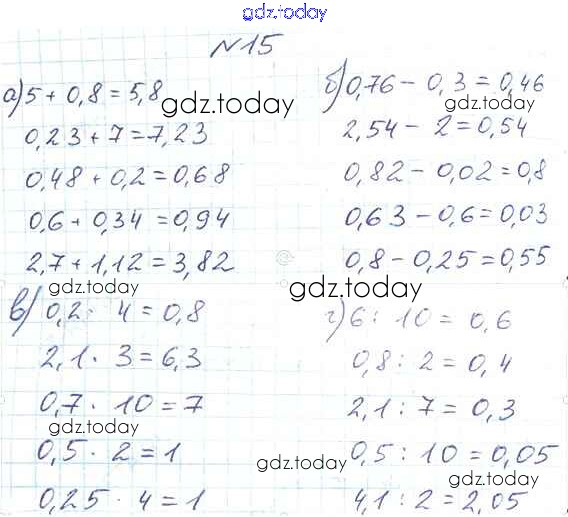 gdz.today
№15
а) 5 + 0,8 = 5,8
gdz.today
0,23 + 7 = 7,23
0,48 + 0,2 = 0,68
0,6 + 0,34 = 0,94
2,7 + 1,12 = 3,82
gdz.today
б) 0,76 - 0,3 = 0,46
gdz.today
2,54 - 2 = 0,54
0,82 - 0,02 = 0,8
0,63 - 0,6 = 0,03
0,8 - 0,25 = 0,55
gdz.today
в) 0,2 · 4 = 0,8
2,1 · 3 = 6,3
0,7 · 10 = 7
gdz.today
0,5 · 2 = 1
0,25 · 4 = 1
г) 6 : 10 = 0,6
0,8 : 2 = 0,4
2,1 : 7 = 0,3
0,5 : 10 = 0,05
gdz.today
gdz.today
4,1 : 2 = 2,05